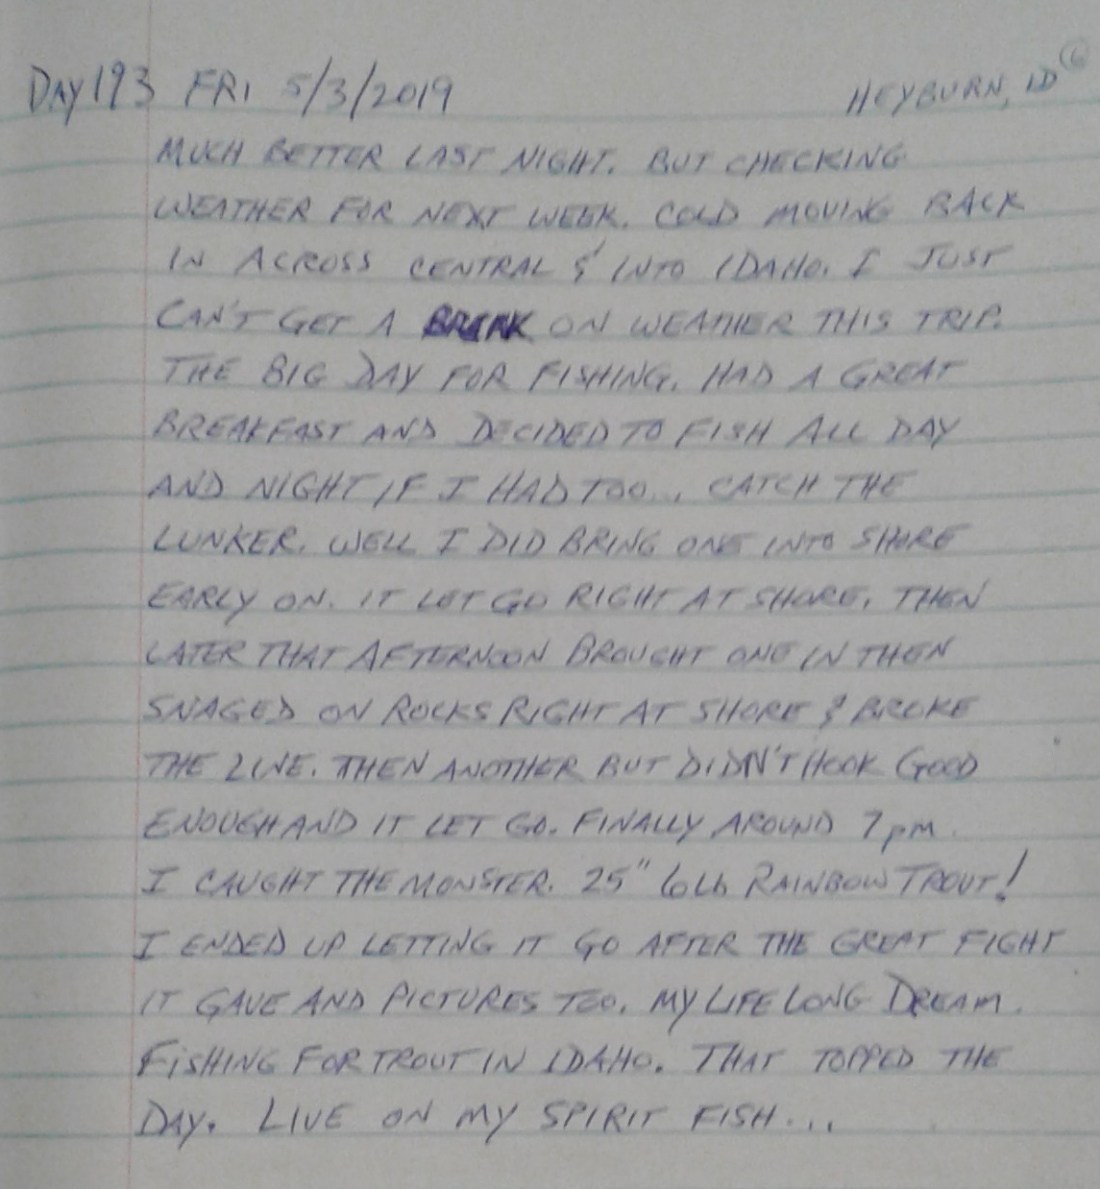 DAY 193 FRI 5/3/2019 HEYBURN, ID (6)
MUCH BETTER LAST NIGHT. BUT CHECKING
WEATHER FOR NEXT WEEK. COLD MOVING BACK
IN ACROSS CENTRAL & INTO IDAHO. I JUST
CAN'T GET A BREAK ON WEATHER THIS TRIP.
THE BIG DAY FOR FISHING. HAD A GREAT
BREAKFAST AND DECIDED TO FISH ALL DAY
AND NIGHT IF I HAD TOO... CATCH THE
LUNKER. WELL I DID BRING ONE INTO SHORE
EARLY ON. IT LET GO RIGHT AT SHORE. THEN
LATER THAT AFTERNOON BROUGHT ONE IN THEN
SNAGED ON ROCKS RIGHT AT SHORE & BROKE
THE LINE. THEN ANOTHER BUT DIDN'T HOOK GOOD
ENOUGH AND IT LET GO. FINALLY AROUND 7pm.
I CAUGHT THE MONSTER. 25" 6Lb RAINBOW TROUT!
I ENDED UP LETTING IT GO AFTER THE GREAT FIGHT
IT GAVE AND PICTURES TOO. MY LIFE LONG DREAM.
FISHING FOR TROUT IN IDAHO. THAT TOPPED THE
DAY. LIVE ON MY SPIRIT FISH...